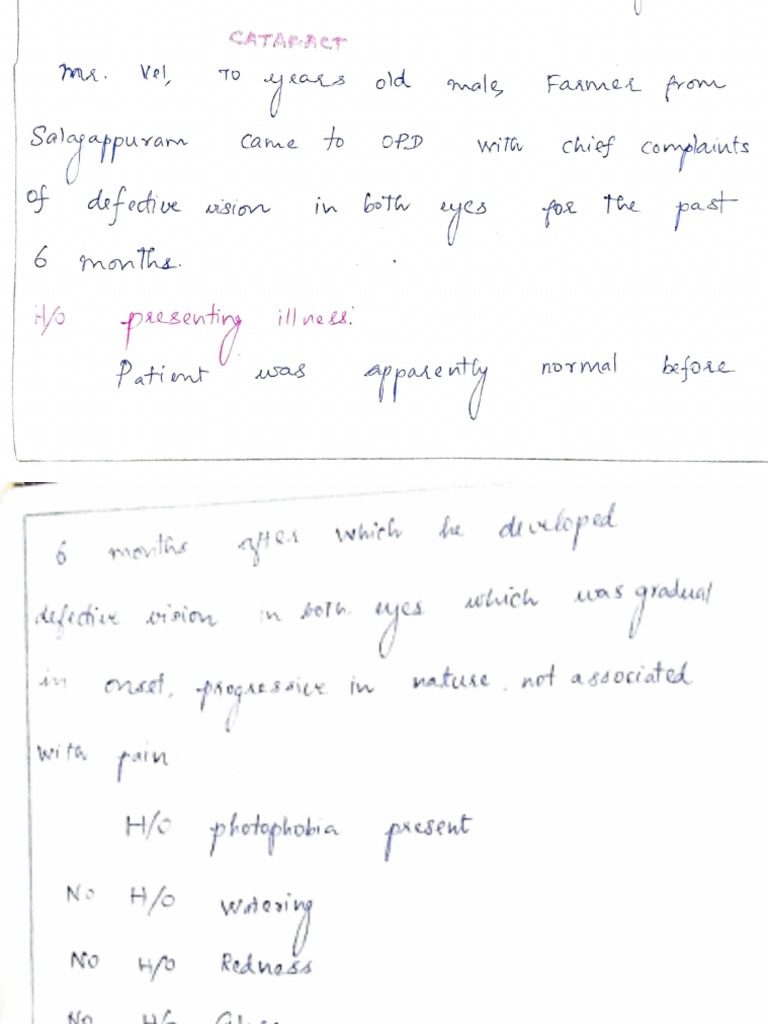 CATARACT
Mr. Vel, 70 years old male, Farmer from
Salagappuram came to OPD with chief complaints
of defective vision in both eyes for the past
6 months.
H/O presenting illness:
Patient was apparently normal before
6 months after which he developed
defective vision in both eyes which was gradual
in onset, progressive in nature, not associated
with pain
H/O photophobia present
No H/O Watering
No H/O Redness
No H/O